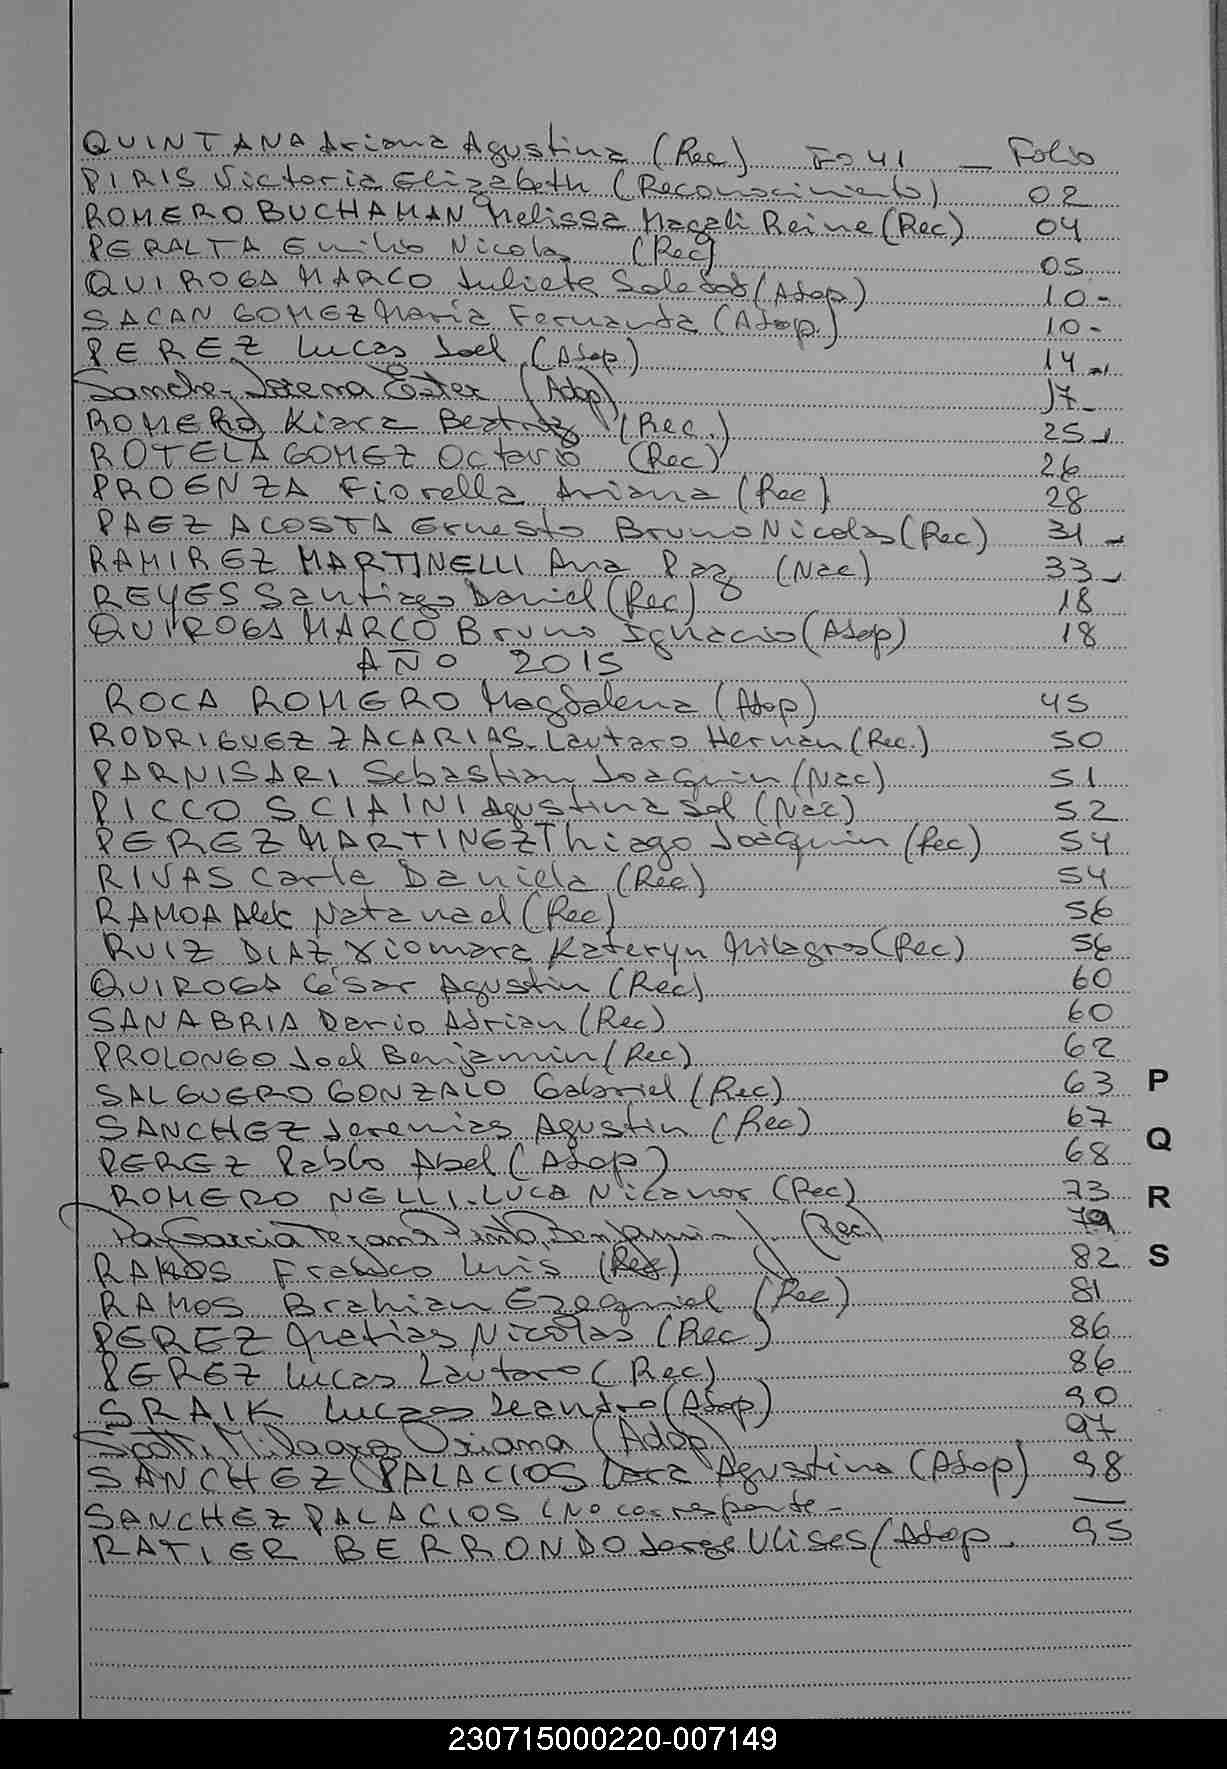 QUINTANA Ariana Agustina (Rec) Fº 41 — Folio
PIRIS Victoria Elizabeth (Reconocimiento) 02
ROMERO BUCHAMAN Melissa Magali Reine (Rec) 04
PERALTA Emilio Nicolas (Rec) 05
QUIROGA MARCO Julieta Soledad (Adop.) 10-
SACAN GOMEZ Maria Fernanda (Adop.) 10-
PEREZ Lucas Joel (Adop) 14
Sanchez Ester (Adop) 17-
ROMERO Kiara Beatriz (Rec.) 25
ROTELA GOMEZ Octavio (Rec) 26
PROENZA Fiorella Ariana (Rec) 28
PAEZ ACOSTA Ernesto Bruno Nicolas (Rec) 31
RAMIREZ MARTINELLI Ana Paz (Nac) 33
REYES Santiago Daniel (Rec) 18
QUIROGA MARCO Bruno Ignacio (Adop) 18
AÑO 2015
ROCA ROMERO Magdalena (Adop) 45
RODRIGUEZ ZACARIAS Lautaro Hernan (Rec.) 50
PARNISARI Sebastian Joaquin (Nac) 51
PICCO SCIAINI Agustina Sol (Nac) 52
PEREZ MARTINEZ Thiago Joaquin (Rec) 54
RIVAS Carla Daniela (Rec) 54
RAMOA Alek Natanael (Rec) 56
RUIZ DIAZ Xiomara Kateryn Milagros (Rec) 56
QUIROGA César Agustin (Rec) 60
SANABRIA Dario Adrian (Rec) 60
PROLONGO Joel Benjamin (Rec) 62
SALGUERO GONZALO Gabriel (Rec) 63
SANCHEZ Jeremias Agustin (Rec) 67
PEREZ Pablo Abel (Adop) 68
ROMERO NELLI Luca Nicanor (Rec) 73
Garcia Benjamin (Rec) 79
RAMOS Franco Luis (Rec) 82
RAMOS Brahian Ezequiel (Rec) 81
PEREZ Matias Nicolas (Rec) 86
PEREZ Lucas Lautaro (Rec) 86
SRAIK Lucas Leandro (Adop) 90
Scotti Milagros Oriana (Adop) 97
SANCHEZ PALACIOS Lara Agustina (Adop) 98
SANCHEZ PALACIOS (No corresponde —
RATIER BERRONDO Jorge Ulises (Adop. 95
P
Q
R
S
230715000220-007149